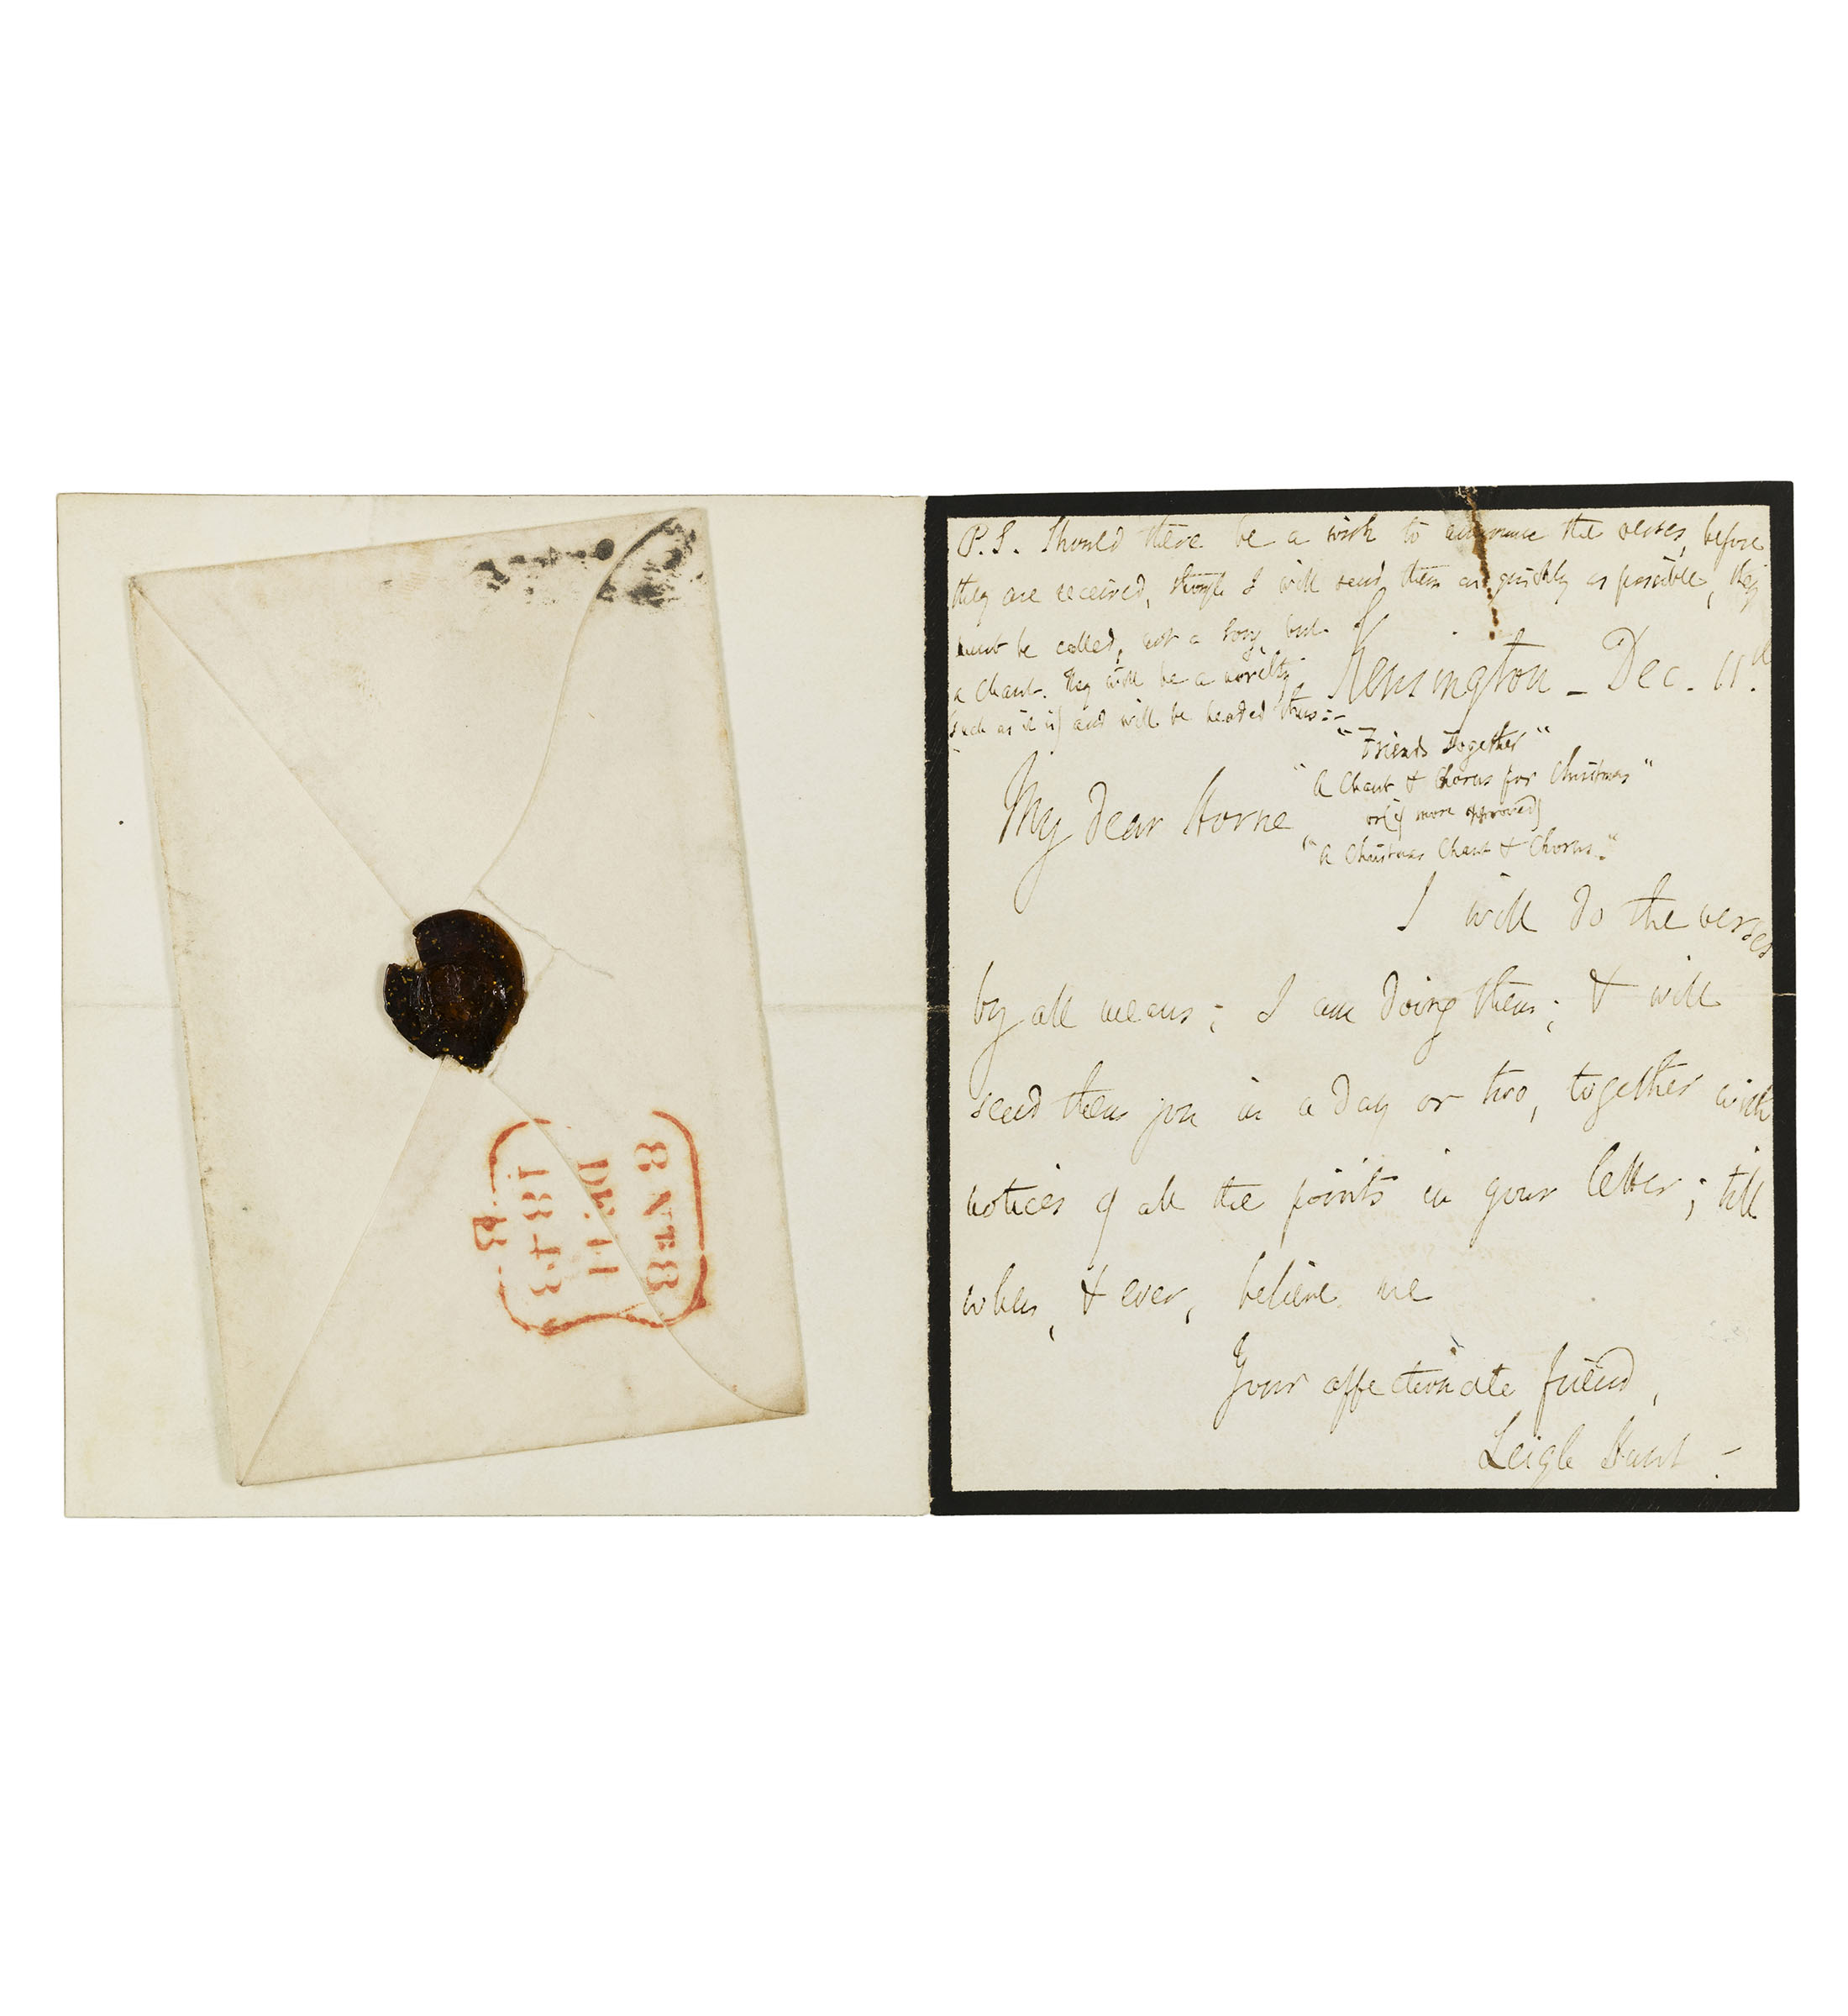 8 AN 8
DE 11
1843
B
P.S. Should there be a wish to announce the verses, before
they are received, though I will send them as quickly as possible, they
must be called, not a song, but
a Chant. They will be a novelty
such as it is) and will be headed thus:-
"Friends Together"
"A Chant & Chorus for Christmas"
or (if more approved)
"A Christmas Chant & Chorus."
Kensington - Dec. 11.
My dear Horne
I will do the verses
by all means; I am doing them; & will
send them you in a day or two, together with
notices of all the points in your letter; till
when, & ever, believe me
Your affectionate friend,
Leigh Hunt -